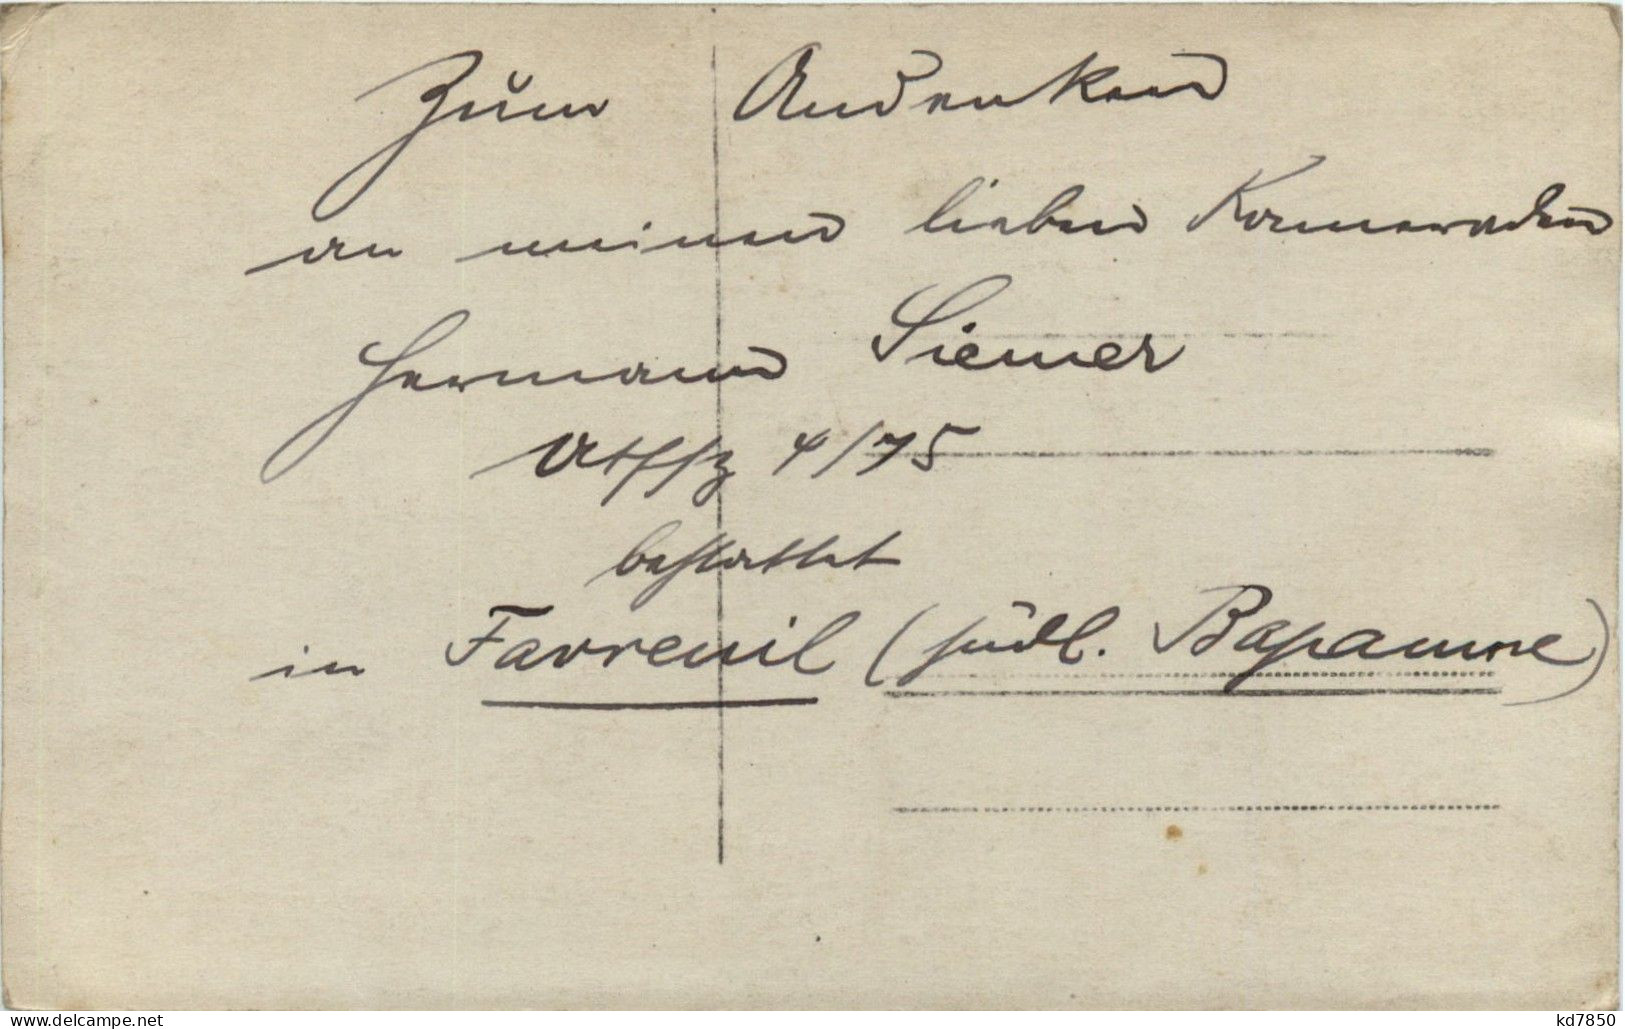 Zum Andenken
an meinen lieben Kameraden
Hermann Siemer
Utffz 4/75
bestattet
in Favreuil (südl. Bapaume)
www.delcampe.net
kd7850